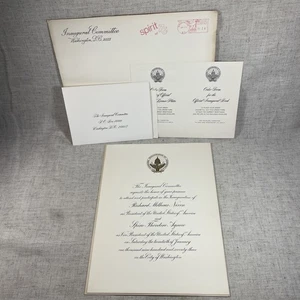 Inaugural Committee
Washington, D.C.
spirit
Order Form
Official
Order Form
for the
Official Inaugural Book
The Inaugural Committee
Washington, D.C.
The Inaugural Committee
requests the honor of your presence
to attend and participate in the Inauguration of
Richard Milhous Nixon
as President of the United States of America
and
Spiro Theodore Agnew
as Vice President of the United States of America
on Saturday the twentieth of January
one thousand nine hundred and seventy-three
in the City of Washington